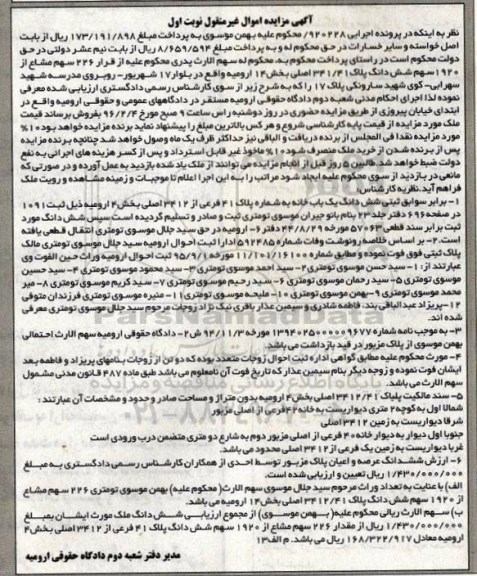 آگهی مزایده اموال غیرمنقول نوبت اول
نظر به اینکه در پرونده اجرایی ۹۲۰۲۲۸/ محکوم علیه بهمن موسوی به پرداخت مبلغ ۱۷۳/۱۹۱/۸۹۸ ریال از بابت
اصل خواسته و سایر خسارات در حق محکوم له و به پرداخت مبلغ ۸/۶۵۹/۵۹۴ ریال از بابت نیم عشر دولتی در حق
دولت محکوم است در راستای پرداخت محکوم به، محکوم له سهم الارث پدری محکوم علیه از قرار ۲۲۶ سهم مشاع از
۱۹۲۰ سهم شش دانگ پلاک ۳۴۱/۴۱ اصلی بخش ۱۴ ارومیه واقع در بلوار ۱۷ شهریور- روبروی مدرسه شهید
سهرابی-کوی شهید سارونگی پلاک ۱۷ را که به شرح زیر از سوی کارشناس رسمی دادگستری ارزیابی شده معرفی
نموده لذا اجرای احکام مدنی شعبه دوم دادگاه حقوقی ارومیه مستقر در دادگاههای عمومی و حقوقی ارومیه واقع در
ابتدای خیابان پیروزی از طریق مزایده حضوری در روز دوشنبه راس ساعت ۹ صبح مورخ ۹۶/۲/۴ بفروش برساند قیمت
ملک مورد مزایده از قیمت پایه کارشناسی شروع و هر کس بالاترین مبلغ را پیشنهاد نماید برنده مزایده خواهد بود ۱۰%
مورد مزایده نقدا فی المجلس از برنده دریافت و الباقی نیز حداکثر ظرف یک ماه وصول خواهد شد چنانچه برنده مزایده
پس از برنده شدن از خرید ملک منصرف شود ۱۰% ماخوذ غیر قابل استرداد و پس از کسر هزینه های اجرائی به نفع
دولت ضبط خواهد شد. طالبین ۵ روز قبل از انجام مزایده می توانند از ملک یاد شده بازدید به عمل آورده و در صورتی که
مانعی در بازدید از سوی محکوم علیه ایجاد شود مراتب را به این اجرا اعلام تا موجبات و زمینه مشاهده و رویت ملک
فراهم آید. نظریه کارشناس:
۱- برابر سوابق ثبتی شش دانگ یک باب خانه به شماره پلاک ۴۱ فرعی از ۳۴۱۲ اصلی بخش ۴ ارومیه ذیل ثبت ۱۰۹۱
در صفحه ۶۹۶ دفتر جلد ۲۳ بنام بانو جیران موسوی تومتری ثبت و صادر و تسلیم گردیده است سپس شش دانگ مورد
ثبت برابر سند قطعی ۵۷۰۶۳ مورخه ۴۴/۸/۲۹ دفتر ۶- ارومیه در حق سید جلال موسوی تومتری انتقال قطعی یافته
است. ۲- بر اساس خلاصه رونوشت وفات شماره ۵۹۲۴۸۵ ادارا ثبت احوال ارومیه سید جلال موسوی تومتری مالک
پلاک ثبتی فوق فوت نموده و مطابق شماره ۱۱/۱۰۱/۱۶۱۰۰ مورخ ۹۵/۹/۱ ثبت احوال ارومیه وراث حین الفوت وی
عبارتند از: ۱- سید حسن موسوی تومتری ۲- سید احمد موسوی تومتری ۳- سید محمود موسوی تومتری ۴- سید حسین
موسوی تومتری ۵- سید رحمان موسوی تومتری ۶- سید رحیم موسوی تومتری ۷- سید کریم موسوی تومتری ۸- میر
محمد موسوی تومتری ۹- بهمن موسوی تومتری ۱۰- ملیحه موسوی تومتری ۱۱- منیره موسوی تومتری فرزندان متوفی
۱۲- پریزاد عبدالباقی بند، فاطمه بعدی و سیمین عذار باقری نیک نژاد زوجات مرحوم سید جلال موسوی تومتری معرفی
شده اند.
۳- به موجب نامه شماره ۱۳۹۴۰۲۵۰۰۰۰۰۹۶۷۷ مورخه ۹۴/۱۱/۳ ش ۲- دادگاه حقوقی ارومیه سهم الارث احتمالی
بهمن موسوی از پلاک مزبور در قید بازداشت می باشد.
۴- مورث محکوم علیه مطابق گواهی اداره ثبت احوال زوجات متعدد بوده که دو تن از زوجات بنامهای پریزاد و فاطمه بعد
ایشان فوت نموده و زوجه دیگر بنام سیمین عذار که تاریخ فوت آن نامعلوم می باشد طبق ماده ۴۸۷ قانون مدنی مشمول
سهم الارث می باشد.
۵- سند مالکیت پلاک ۳۴۱۲/۴۱ اصلی بخش ۴ ارومیه بدون متراژ و مساحت صادر و حدود و مشخصات آن عبارتند:
شمالا اول به کوچه ۲ متری دیواریست به خانه ۴۲ فرعی از اصلی مزبور
شرقا دیواریست به زمین ۳۴۱۲ اصلی
جنوبا اول دیوار به دیوار خانه ۴۰ فرعی از اصلی مزبور دوم به شارع دو متری متضمن درب ورودی است
غربا دیواریست به زمین یک فرعی از ۳۴۱۲ اصلی محدود می باشد.
۶- ارزش ششدانگ عرصه و اعیان پلاک مزبور توسط احدی از همکاران کارشناس رسمی دادگستری به مبلغ
۱/۴۳۰/۰۰۰/۰۰۰ ریال تعیین و ارزیابی شده است.
الف) با عنایت به تعداد وراث مرحوم سید جلال موسوی سهم الارث (محکوم علیه) بهمن موسوی تومتری ۲۲۶ سهم مشاع
از ۱۹۲۰ سهم شش دانگ پلاک ۳۴۱۲/۴۱ اصلی بخش ۱۴ ارومیه می باشد.
ب) سهم الارث ریالی محکوم علیه (بهمن موسوی) از مجموع ارزیابی شش دانگ ملک مورث ایشان بمبلغ
۱/۴۳۰/۰۰۰/۰۰۰ ریال از مقدار ۲۲۶ سهم مشاع از ۱۹۲۰ سهم شش دانگ پلاک ۴۱ فرعی از ۳۴۱۲ اصلی بخش ۴
ارومیه معادل ۱۶۸/۳۲۲/۹۱۷ ریال می باشد. م الف ۱۳
مدیر دفتر شعبه دوم دادگاه حقوقی ارومیه